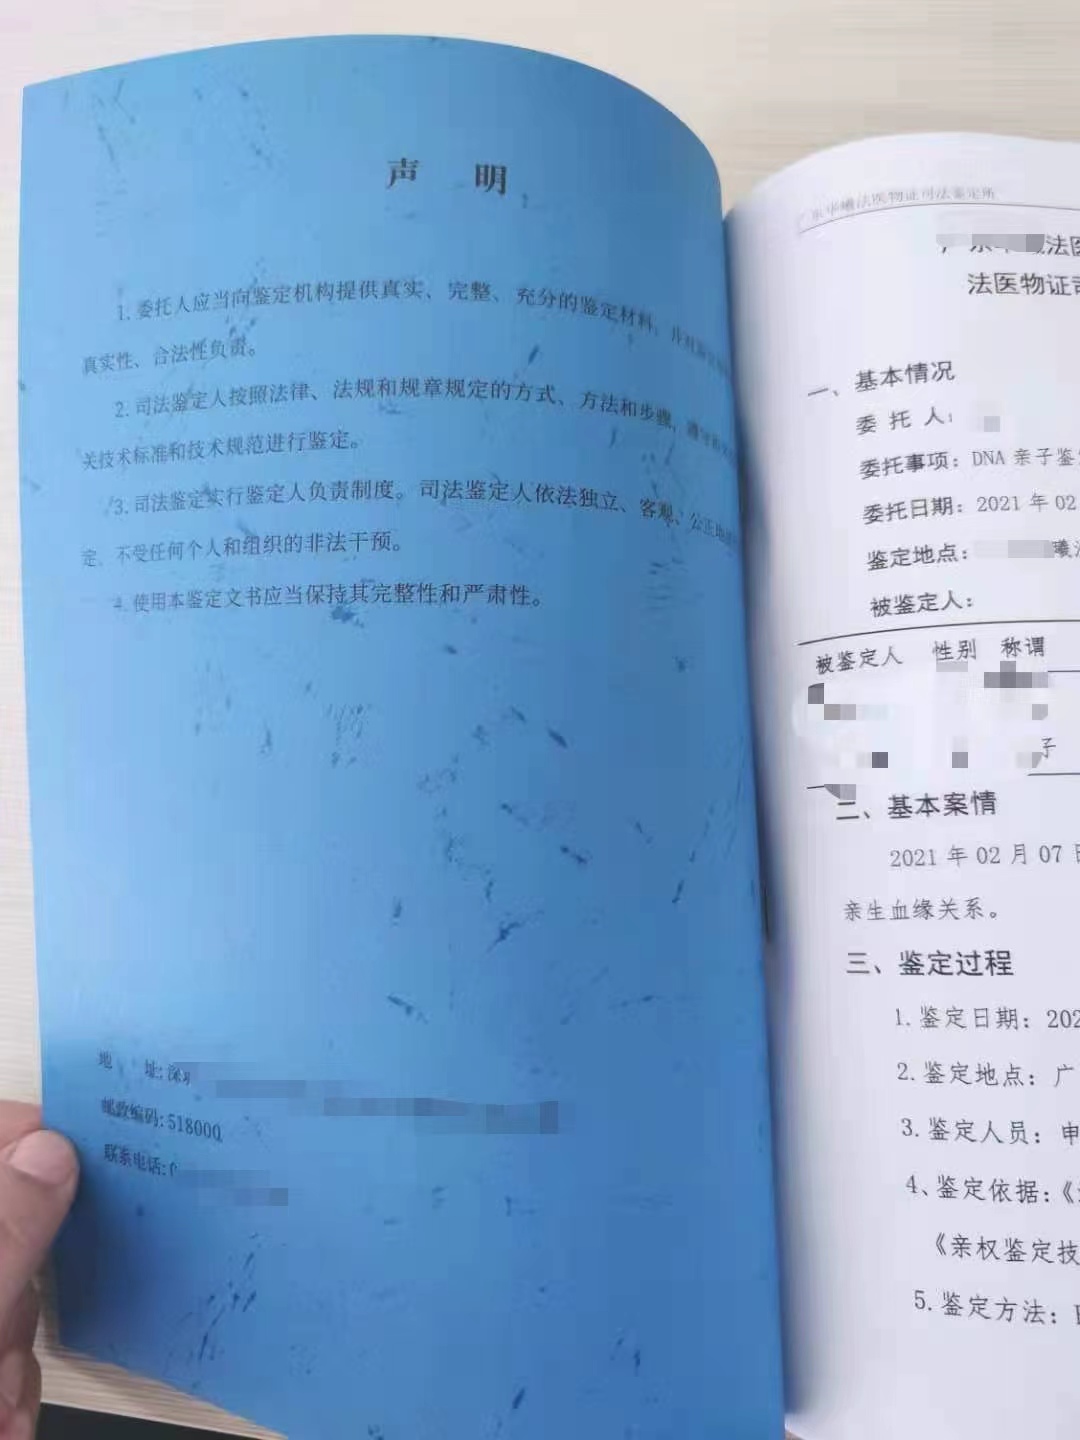 声 明
1.委托人应当向鉴定机构提供真实、完整、充分的鉴定材料,并对鉴定材料
真实性、合法性负责。
2.司法鉴定人按照法律、法规和规章规定的方式、方法和步骤,遵守和
关技术标准和技术规范进行鉴定。
3.司法鉴定实行鉴定人负责制度。司法鉴定人依法独立、客观、公正地
定,不受任何个人和组织的非法干预。
4.使用本鉴定文书应当保持其完整性和严肃性。
地 址:深
邮政编码:518000
联系电话:
广东华曦法医物证司法鉴定所
法医
法医物证
一、基本情况
委 托 人:
委托事项:DNA 亲子鉴
委托日期:2021 年 02
鉴定地点: 曦
被鉴定人:
被鉴定人 性别 称谓
子
二、基本案情
2021 年 02 月 07
亲生血缘关系。
三、鉴定过程
1.鉴定日期:202
2.鉴定地点:广
3.鉴定人员:申
4、鉴定依据:《
《亲权鉴定技
5.鉴定方法: